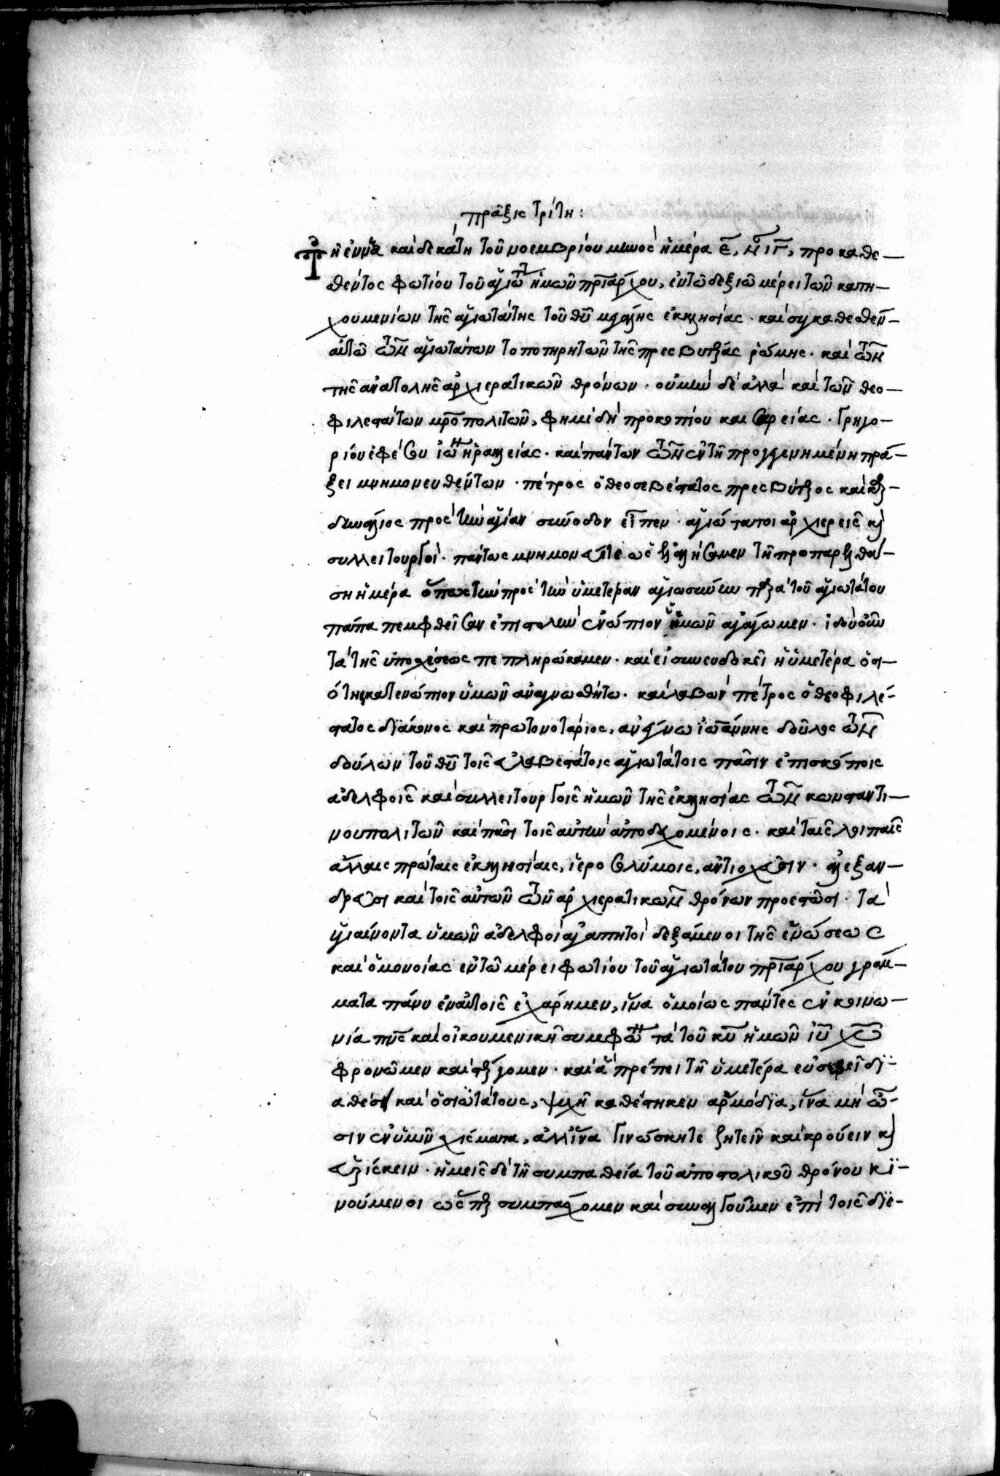 πρᾶξις τρίτη:
Τῆ ἐννάτη καὶ δεκάτη τοῦ νοεμβρίου μηνὸς ἡμέρα προκαθε
θέντος φωτίου τοῦ ἁγιω ἡμῶν πριάρχου, ἐν τῶ δεξιῶ μέρει τῶν κατη
χουμενίων τῆς ἁγιωτάτης τοῦ θῦ μεγάλης ἐκκλησίας· καὶ συγκαθεσθέν
αὐτῶ τῶν ἁγιωτάτων τοποτηρητῶν τῆς πρεσβυτέρας ῥώμης· καὶ τῶν
τῆς ἀνατολῆς ἀρχιερατικῶν θρόνων· οὐ μὴν δὲ ἀλλὰ καὶ τῶν θεο
φιλεστάτων μροπολιτῶν, φημὶ δὴ προκοπίου καισαρείας· γρηγο
ρίου ἐφέσου ἰω ἡρακλείας· καὶ πάντων τῶν ἐν τῆ προγεγενημένη πρά
ξει μνημονευθέντων· πέτρος ὁ θεοσεβέστατος πρεσβύτερος καὶ
δινάλιος πρὸς τὴν ἁγίαν σύνοδον εἶπεν· ἁγιώτατοι ἀρχιερεῖς κ
συλλειτουργοί· πάντως μνημονεύετε ὡς ἐξητήσαμεν τῆ προπαρελθού
ση ἡμέρα ὅπως τὴν πρὸς τὴν ὑμετέραν ἁγιωσύνην παρὰ τοῦ ἁγιωτάτου
πάπα πεμφθεῖσαν ἐπιστολὴν ἐνώπιον ὑμῶν ἀγάγωμεν· ἰδοὺ οὖν
τὰ τῆς ὑποσχέσεως πεπληρώκαμεν· καὶ εἰ συνευδοκεῖ ἡ ὑμετέρα ὁσι
ότης κατενώπιον ὑμῶν ἀναγνωσθήτω· καὶ λαβὼν πέτρος ὁ θεοφιλέ
στατος διάκονος καὶ πρωτονοτάριος, ἀνέγνω ἰωάννης δοῦλος τῶν
δούλων τοῦ θῦ τοῖς εὐλαβεστάτοις ἁγιωτάτοις πᾶσιν ἐπισκόποις
ἀδελφοῖς καὶ συλλειτουργοῖς ἡμῶν τῆς ἐκκλησίας τῶν κωνσταντι
νουπολιτῶν καὶ πᾶσι τοῖς αὐτὴν ἀποδεχομένοις· καὶ ταῖς λοιπαῖς
ἄλλαις πρώταις ἐκκλησίαις, ἱεροσολύμοις, ἀντιοχεῦσιν· ἀλεξαν
δρεῦσι καὶ τοῖς αὐτῶν τῶν ἀρχιερατικῶν θρόνων προεστῶσι· τὰ
ὑγιαίνοντα ὑμῶν ἀδελφοὶ ἀγαπητοὶ δεξάμενοι τῆς ἑνώσεως
καὶ ὁμονοίας ἐν τῶ μέρει φωτίου τοῦ ἁγιωτάτου πριάρχου γράμ
ματα πάνυ ἐν αὐτοῖς ἐχάρημεν, ἵνα ὁμοίως πάντες ἐν κοινω
νία πνς καὶ οἰκουμενικῆ συμφω τὰ τοῦ κῦ ἡμῶν ἰῦ χῦ
φρονῶμεν καὶ λέγομεν· καὶ ἃ πρέπει τῆ ὑμετέρα εὐσεβεῖ δι
αθέσει καὶ ὁσιωτάτους, ψυχῆ καθέστηκεν ἁρμόδια, ἵνα μὴ ὦ
σιν ἐν ὑμῖν χίσματα, ἀλλ' ἵνα γινώσκητε ζητεῖν καὶ κρούειν κ
εὑρίσκειν· ἡμεῖς δὲ τῆ συμπαθεία τοῦ ἀποστολικοῦ θρόνου κι
νούμενοι συμπάσχομεν καὶ συναλγοῦμεν ἐπὶ τοῖς διε